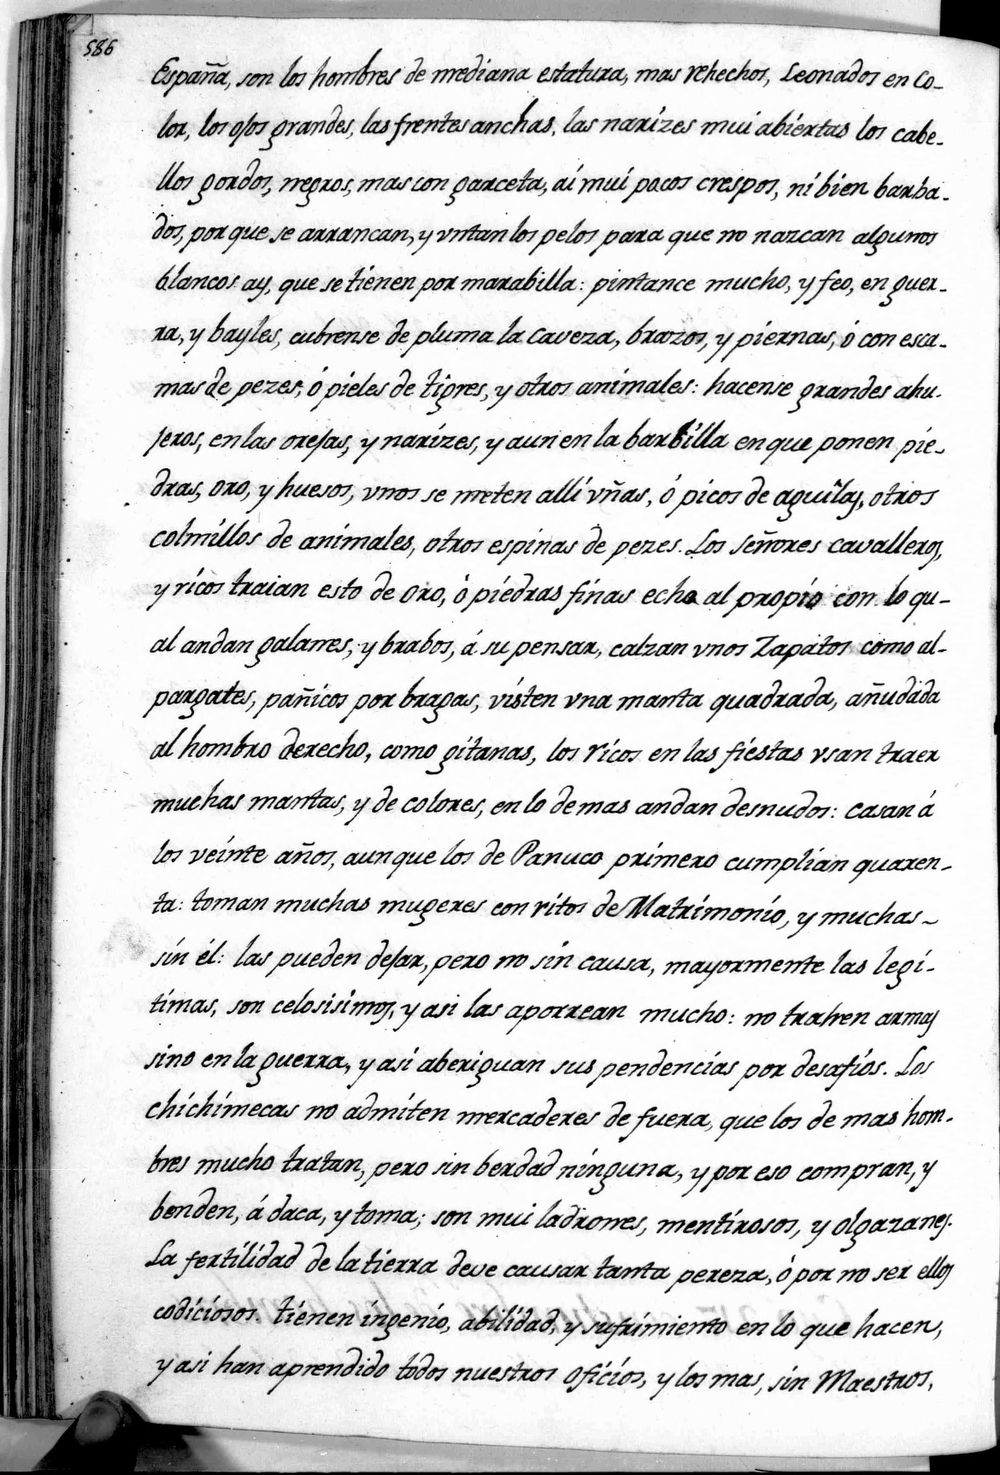 586
España, son los hombres de mediana estatura, mas rehechos, Leonados en Co-
lor, los ojos grandes, las frentes anchas, las narizes mui abiertas los cabe-
llos gordos, negros, mas con garceta, ai mui pocos crespos, ni bien barba-
dos, porque se arrancan, y vntan los pelos para que no nazcan algunos
blancos ay, que se tienen por marabilla: pintance mucho, y feo, en guer-
ra, y bayles, cubrense de pluma la Caveza, brazos, y piernas, ó con esca-
mas de pezes, ó pieles de tigres, y otros animales: hacense grandes ahu-
jeros, en las orejas, y narizes, y aun en la barbilla en que ponen pie-
dras, oro, y huesos, vnos se meten alli vñas, ó picos de aguilas, otros
colmillos de animales, otros espinas de pezes. Los señores cavalleros,
y ricos traian esto de oro, ó piedras finas echo al propio con lo qu-
al andan galanes, y brabos, á su pensar, calzan vnos Zapatos como al-
pargates, pañicos por bragas, visten vna manta quadrada, añudada
al hombro derecho, como gitanas, los ricos en las fiestas vsan traer
muchas mantas, y de colores, en lo demas andan desnudos: casan á
los veinte años, aunque los de Panuco primero cumplian quaren-
ta: toman muchas mugeres con ritos de Matrimonio, y muchas-
sin él: las pueden dejar, pero no sin causa, mayormente las legi-
timas, son celosisimos, y asi las aporrean mucho: no trahen armas
sino en la guerra, y asi aberiguan sus pendencias por desafios. Los
chichimecas no admiten mercaderes de fuera, que los de mas hom-
bres mucho tratan, pero sin berdad ninguna, y por eso compran, y
benden, á daca, y toma; son mui ladrones, mentirosos, y olgazanes.
La fertilidad de la tierra deve causar tanta pereza, ó por no ser ellos
codiciosos. tienen ingenio, abilidad, y sufrimiento en lo que hacen,
y asi han aprendido todos nuestros oficios, y los mas, sin Maestros,